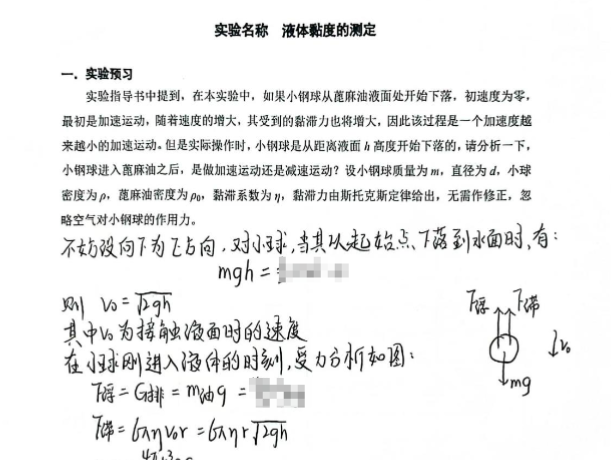 实验名称　液体黏度的测定
一．实验预习
实验指导书中提到，在本实验中，如果小钢球从蓖麻油液面处开始下落，初速度为零，
最初是加速运动，随着速度的增大，其受到的黏滞力也将增大，因此该过程是一个加速度越
来越小的加速运动。但是实际操作时，小钢球是从距离液面 h 高度开始下落的，请分析一下，
小钢球进入蓖麻油之后，是做加速运动还是减速运动？设小钢球质量为 m，直径为 d，小球
密度为 ρ，蓖麻油密度为 ρ₀，黏滞系数为 η，黏滞力由斯托克斯定律给出，无需作修正，忽
略空气对小钢球的作用力。
不妨设向下为正方向，对小球，当其从起始点下落到水面时，有：
mgh =
则 v₀ = √2gh
其中v₀为接触液面时的速度
在小球刚进入液体的时刻，受力分析如图：
F浮 = G排 = m油g =
F滞 = 6πηv₀r = 6πηr√2gh
F浮 F滞
v₀
mg